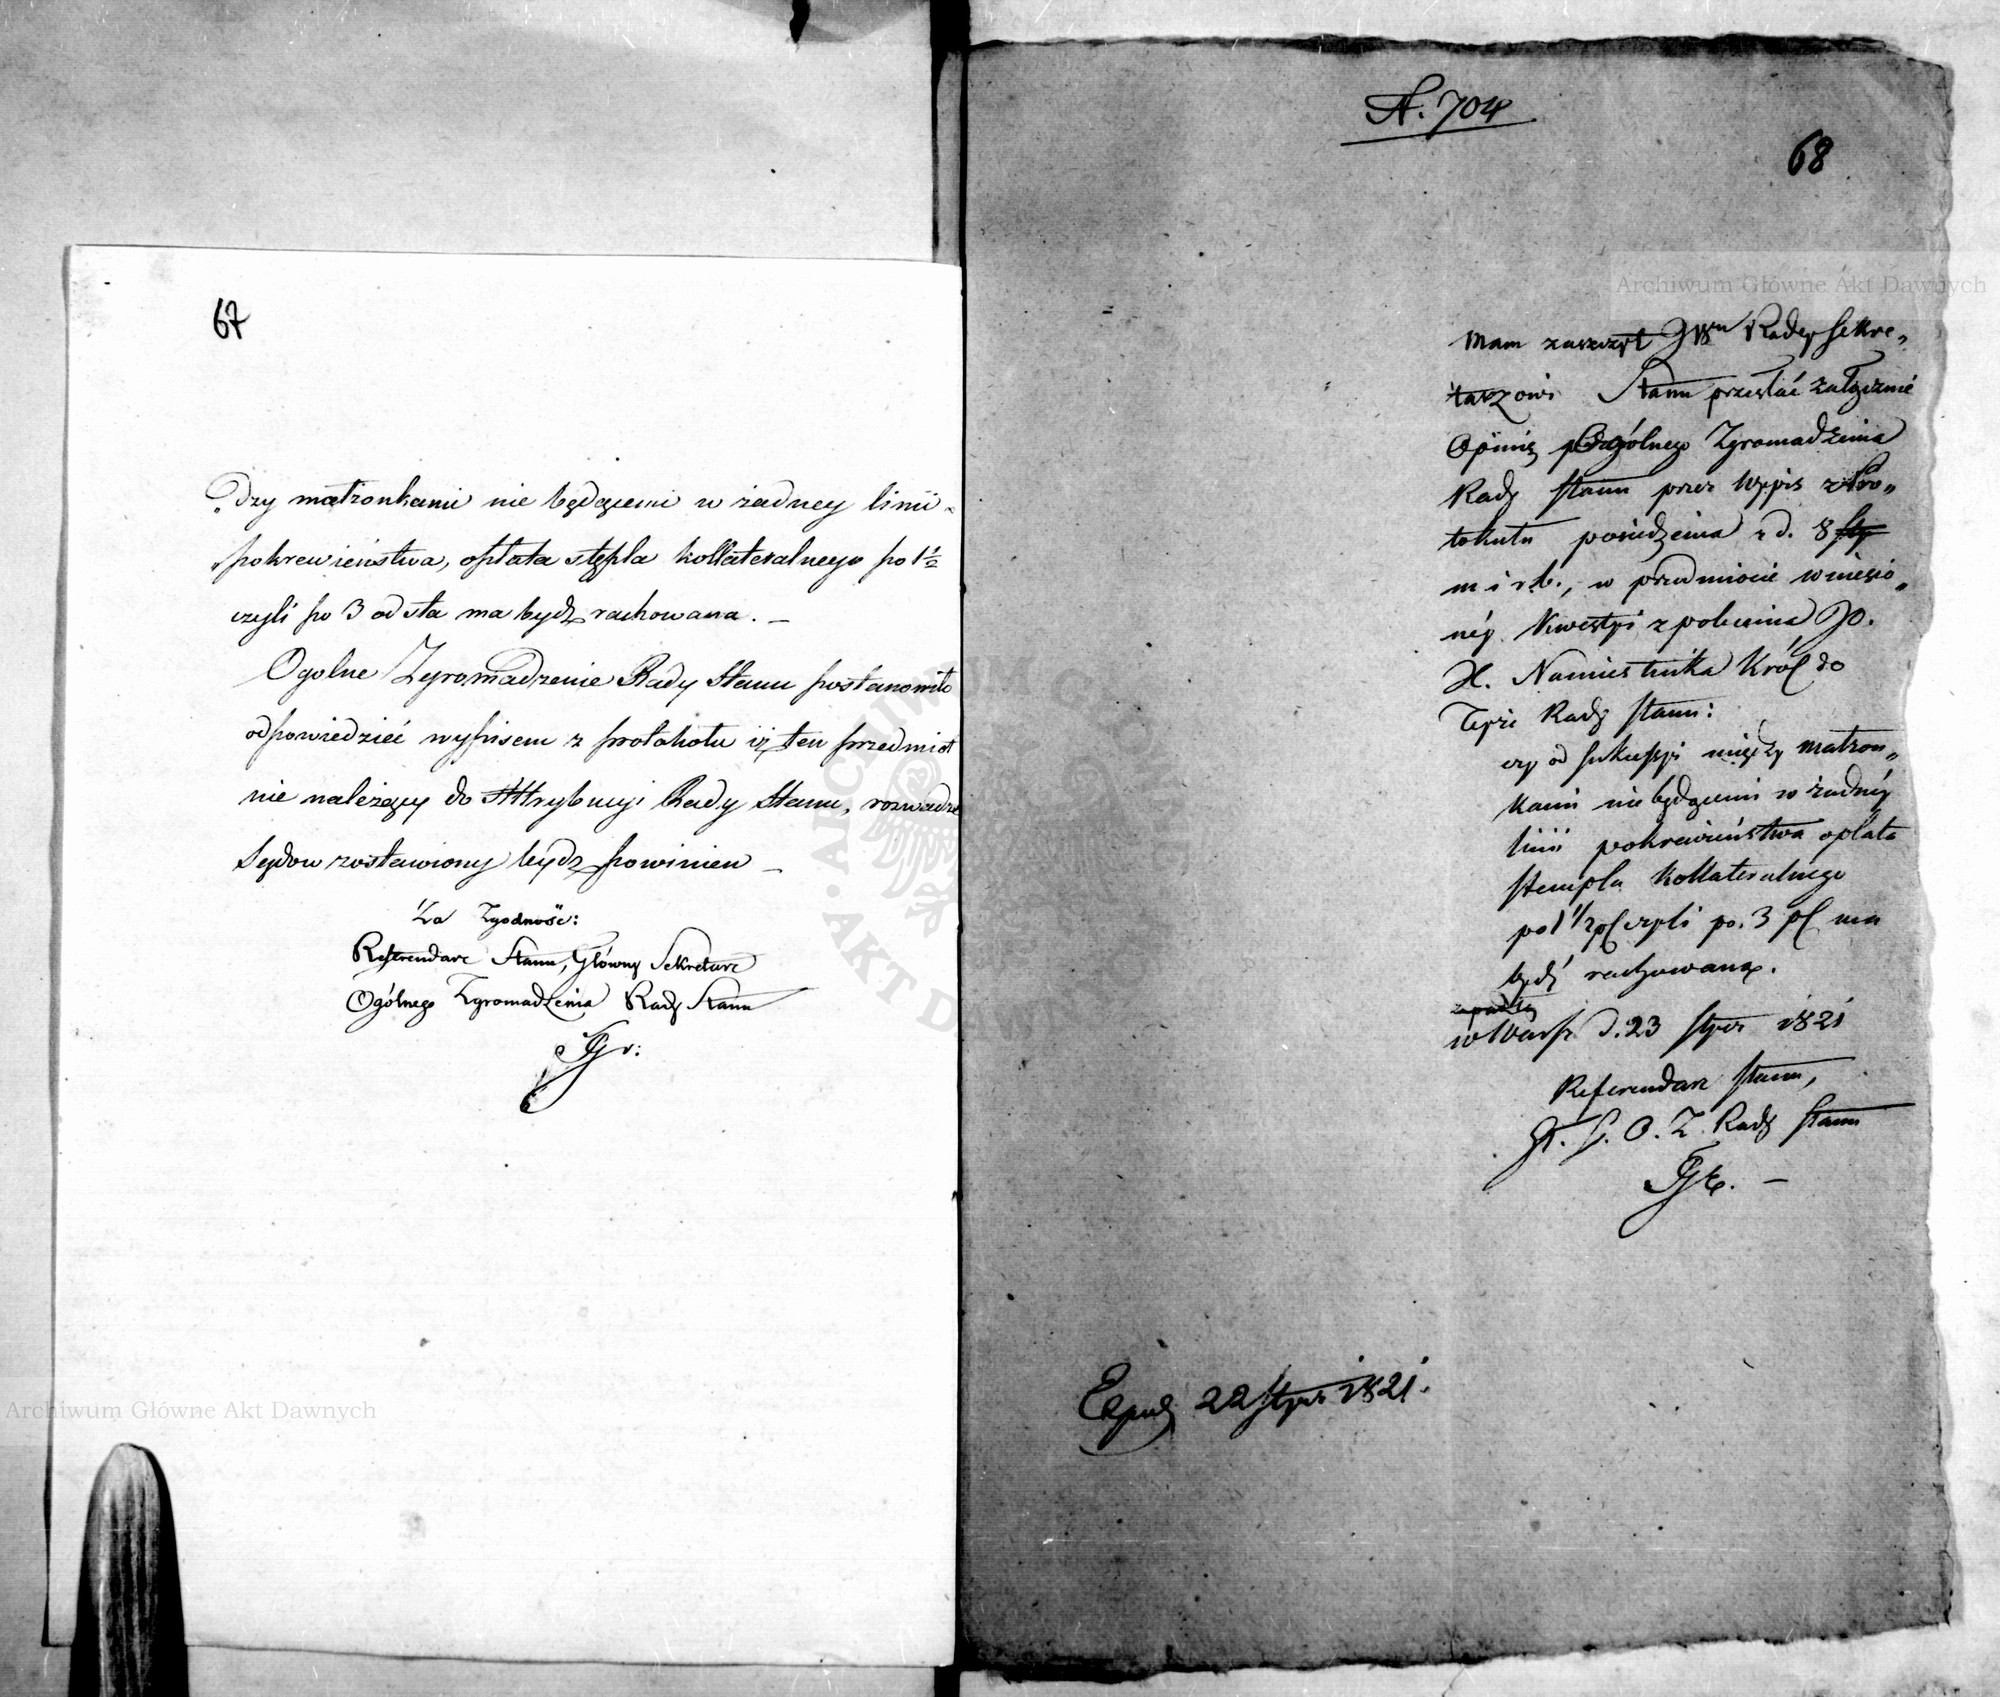 67
„dzy małżonkami nie będącemi w żadney linii
„pokrewieństwa, opłata stępla kollateralnego po 1 1/2
czyli po 3 od sta ma bydź rachowana. —
Ogolne Zgromadzenie Rady Stanu postanowiło
odpowiedzieć wypisem z protokołu iż ten przedmiot
nie należący do Attrybucyi Rady Stanu, rozwadze
Sądow zostawiony bydź powinien —
Za Zgodność:
Referendarz Stanu, Główny Sekretarz
Ogólnego Zgromadzenia Rady Stanu
N. 704
68
Mam zaszczyt JWmu Radcy Sekre„
tarzowi Stanu przesłać załącznie
Opinię Ogólnego Zgromadzenia
Rady Stanu przez Wypis z Pro„
tokułu posiedzenia z d. 8
m i r. b., w przedmiocie wniesio„
néy Kwestyi z polecenia JO.
X. Namiestnika Król do
Teyże Rady Stanu:
czy od sukcessyi między małżon„
kami nie będącemi w żadnéy
linii pokrewieństwa opłata
stempla Kollateralnego
po 1 1/2 pC czyli po. 3 pC ma
bydź rachowaną.
w Warsz d. 23 Stycz 1821
Referendarz Stanu,
Gł. S. O. Z. Rady Stanu
Exped 22 Stycz 1821.
Archiwum Główne Akt Dawnych
Archiwum Główne Akt Dawnych